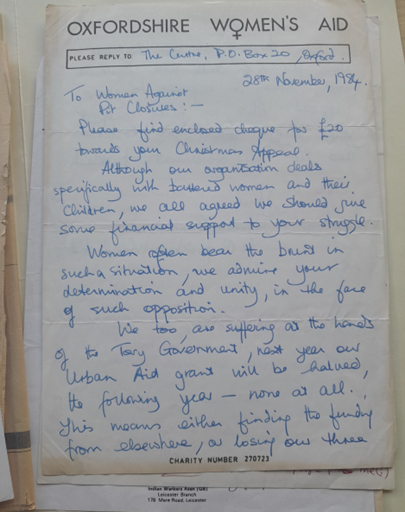 OXFORDSHIRE WOMEN'S AID
PLEASE REPLY TO The Centre, P.O. Box 20, Oxford.
28th November, 1984.
To Women Against
Pit Closures :-
Please find enclosed cheque for £20
towards your Christmas Appeal.
Although our organisation deals
specifically with battered women and their
children, we all agreed we should give
some financial support to your struggle.
Women often bear the brunt in
such a situation, we admire your
determination and unity, in the face
of such opposition.
We too, are suffering at the hands
of the Tory Government, next year our
Urban Aid grant will be halved,
the following year - none at all.
This means either finding the funding
from elsewhere, or losing our three
CHARITY NUMBER 270723
Indian Workers Assn (GB)
Leicester Branch
178 Mere Road, Leicester